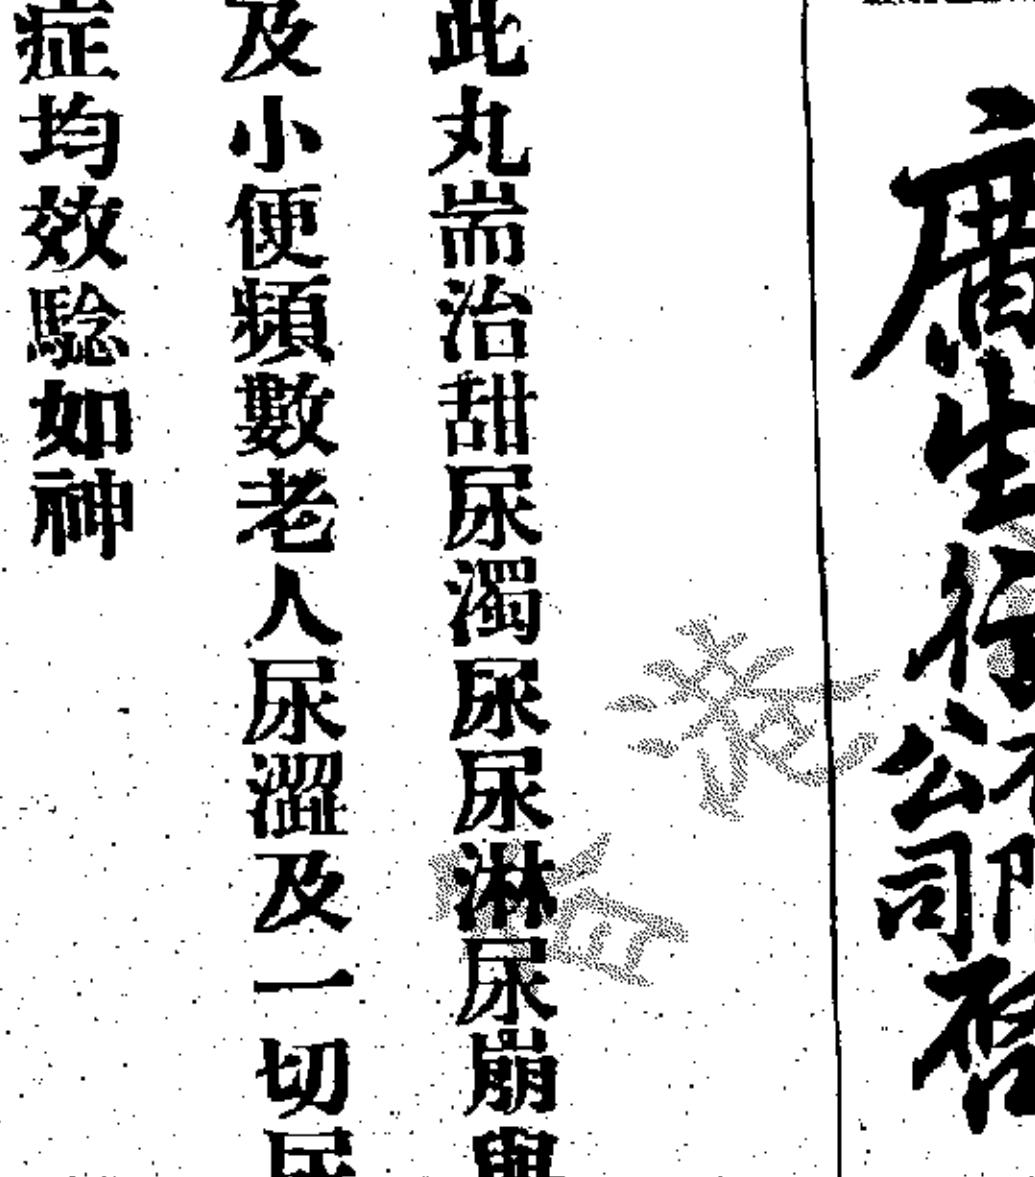 廣生行有限公司啓
此丸耑治甜尿濁尿尿淋尿崩
及小便頻數老人尿澀及一切尿
症均效騐如神